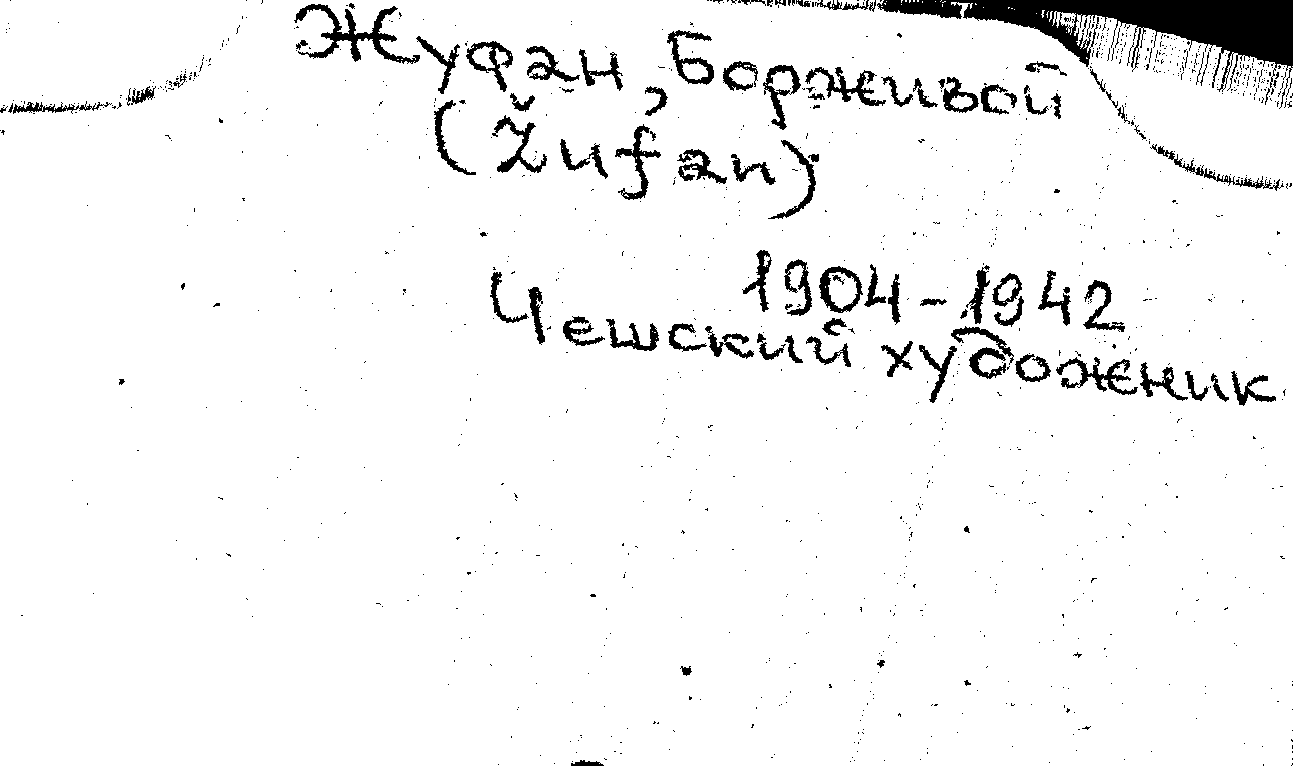 Жуфан, Борживой
(Žufan)
1904-1942
Чешский художник